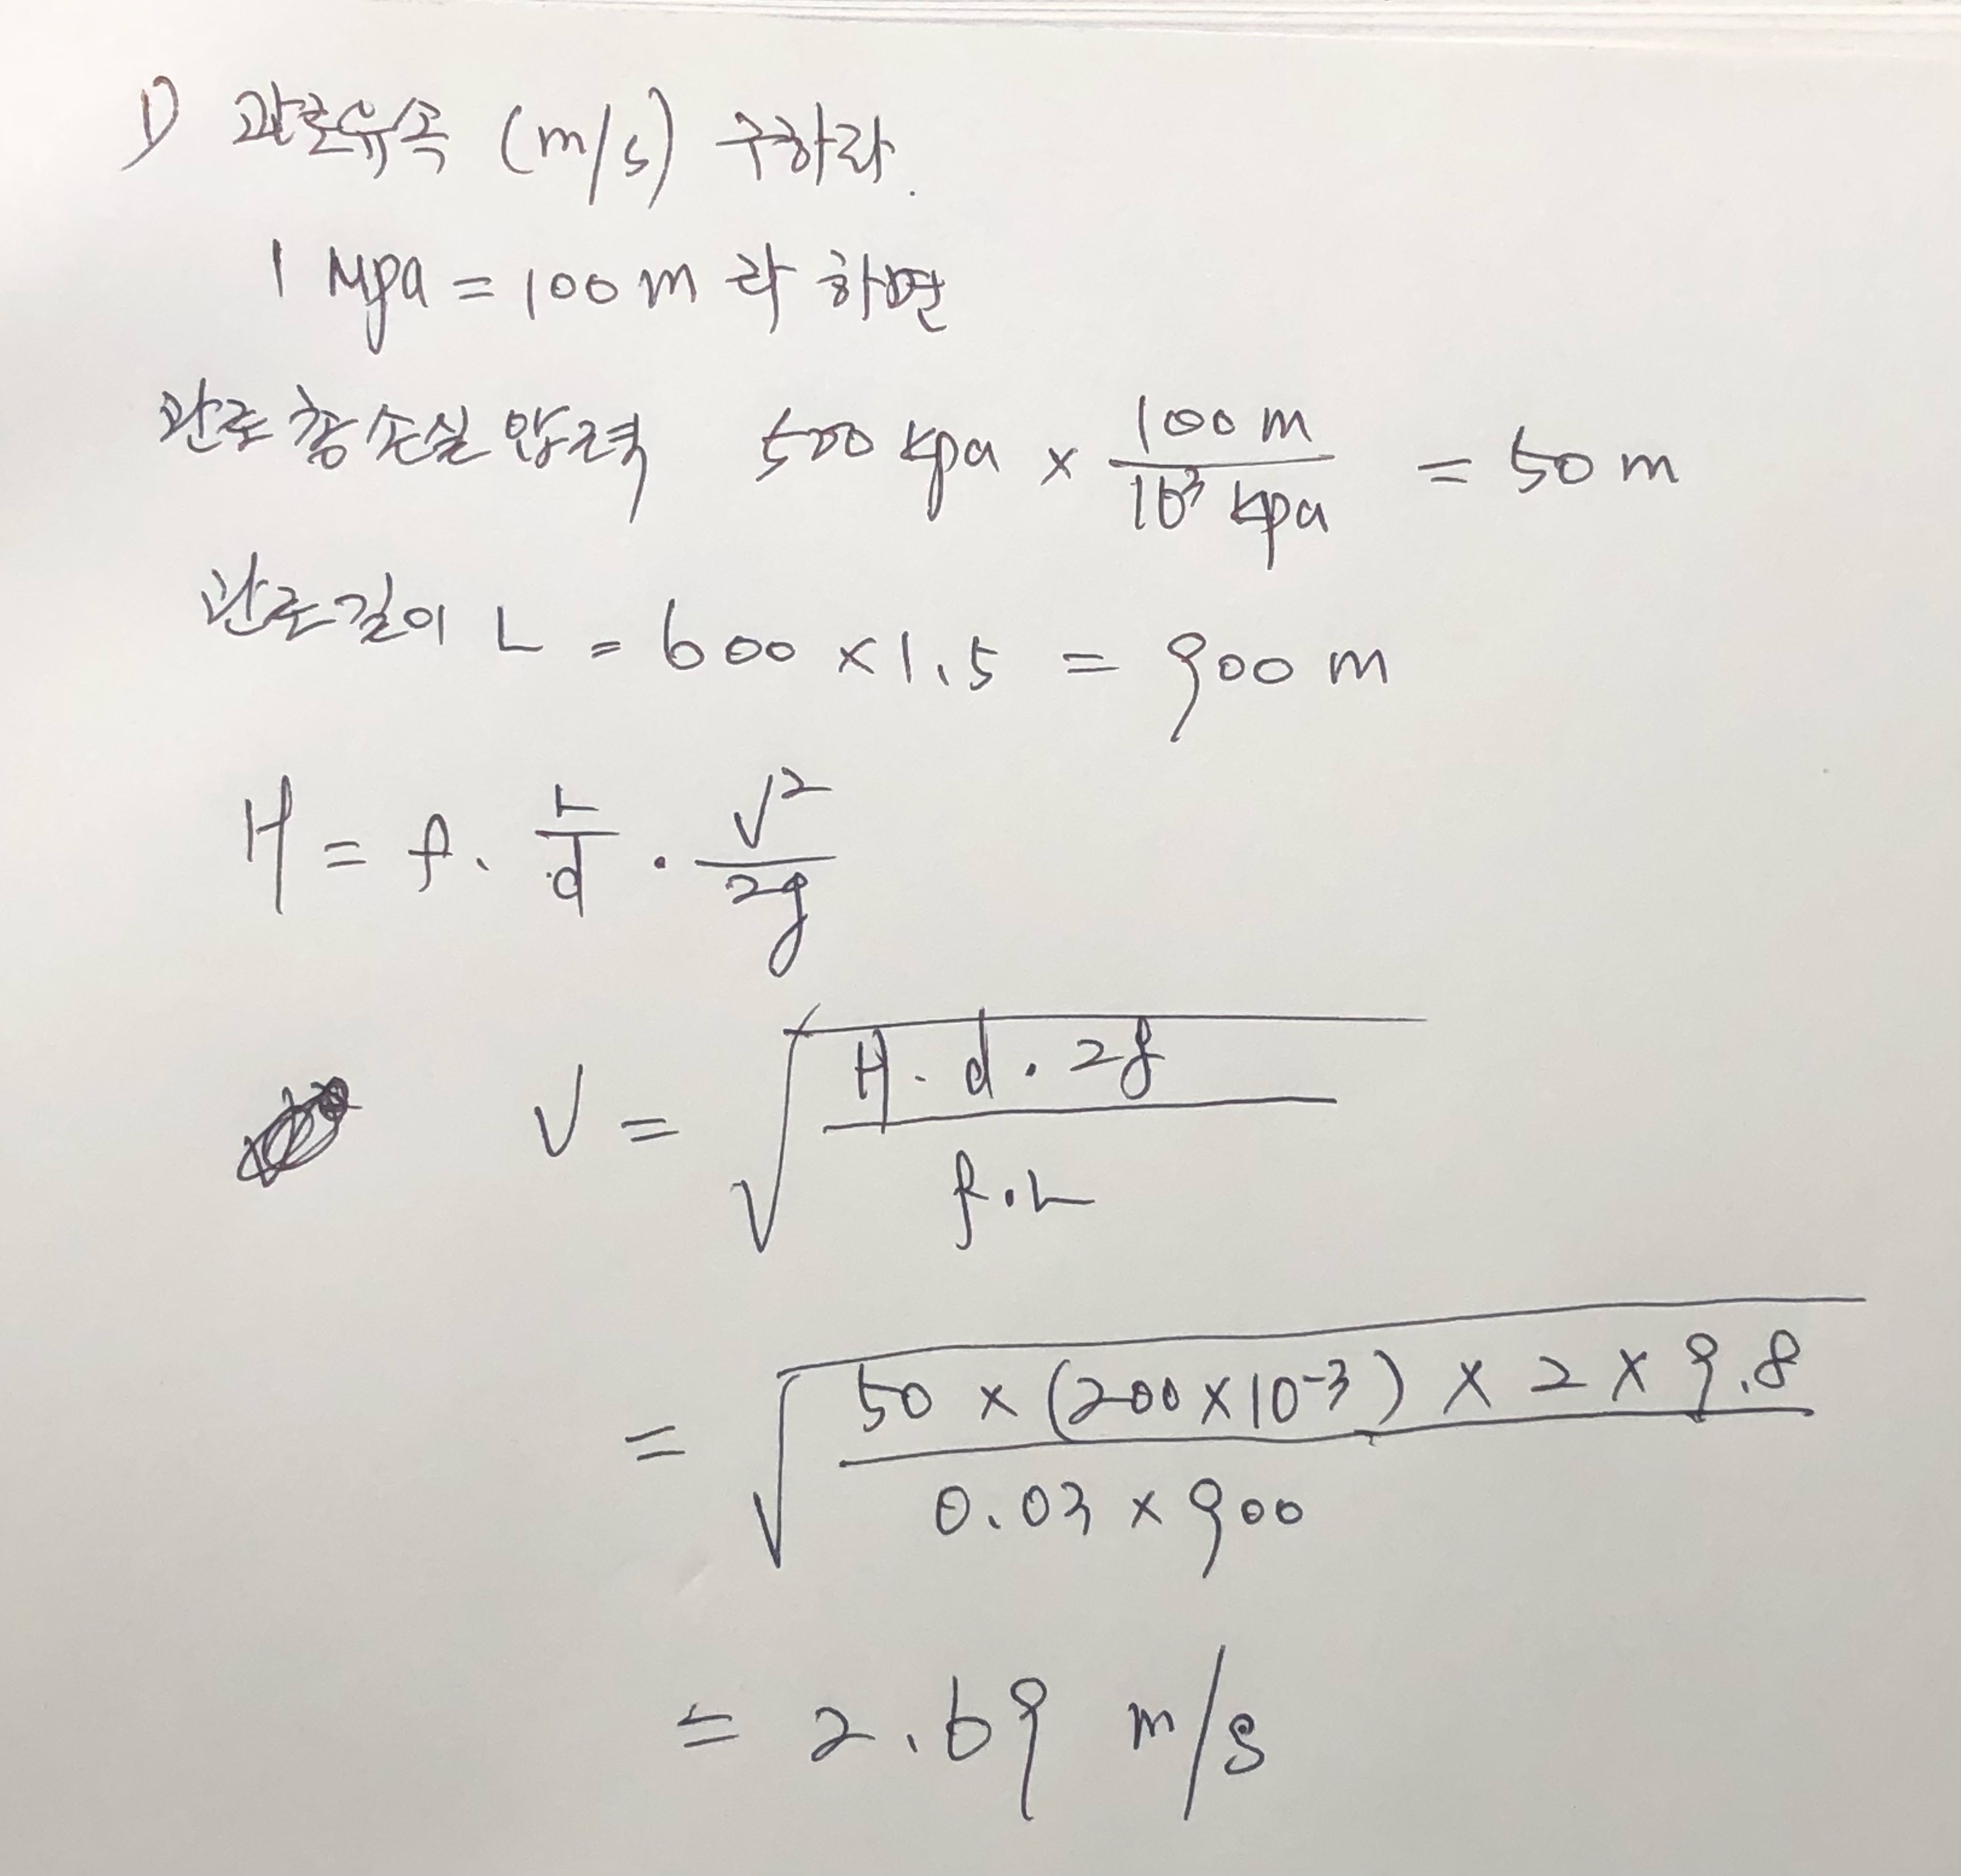 1) 관로유속 (m/s) 구하라.
1 Mpa = 100 m 라 하면
관로 총 손실 압력 500 kpa × 100 m / 10³ kpa = 50 m
관로길이 L = 600 × 1.5 = 900 m
H = f · L/d · V²/2g
V = √(H · d · 2g / f · L)
= √(50 × (200 × 10⁻³) × 2 × 9.8 / 0.03 × 900)
= 2.69 m/s